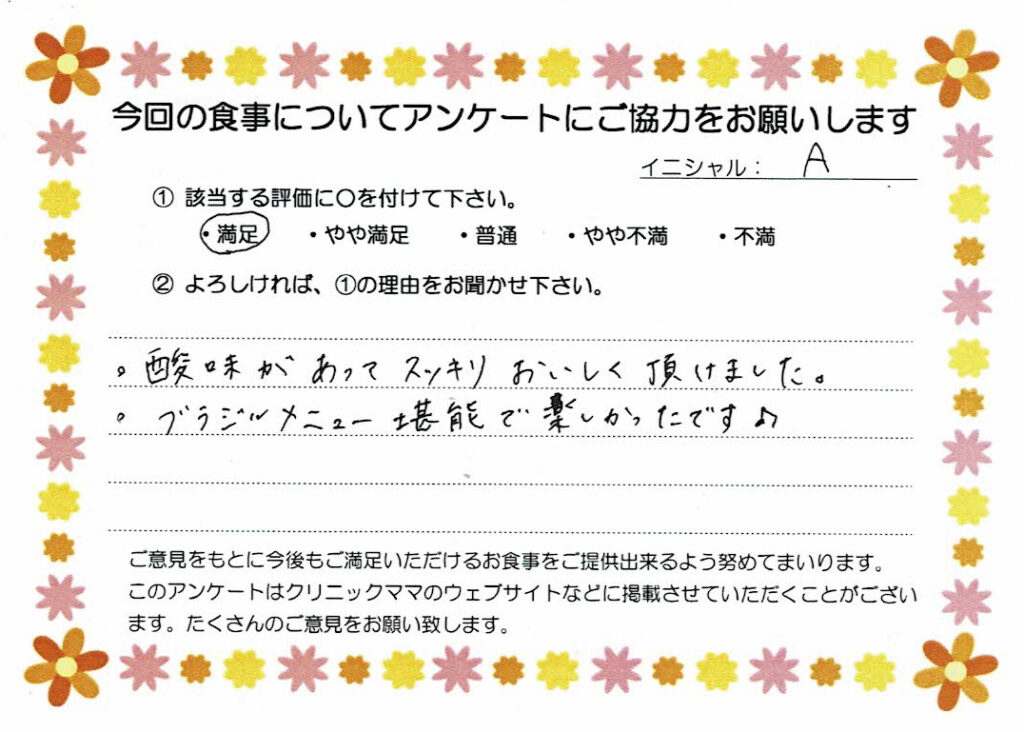 今回の食事についてアンケートにご協力をお願いします
イニシャル： A
① 該当する評価に〇を付けて下さい。
・満足 ・やや満足 ・普通 ・やや不満 ・不満
② よろしければ、①の理由をお聞かせ下さい。
。酸味が あって スッキリ おいしく 頂けました。
。ブラジルメニュー 堪能で楽しかったです♪
ご意見をもとに今後もご満足いただけるお食事をご提供出来るよう努めてまいります。
このアンケートはクリニックママのウェブサイトなどに掲載させていただくことがござい
ます。たくさんのご意見をお願い致します。